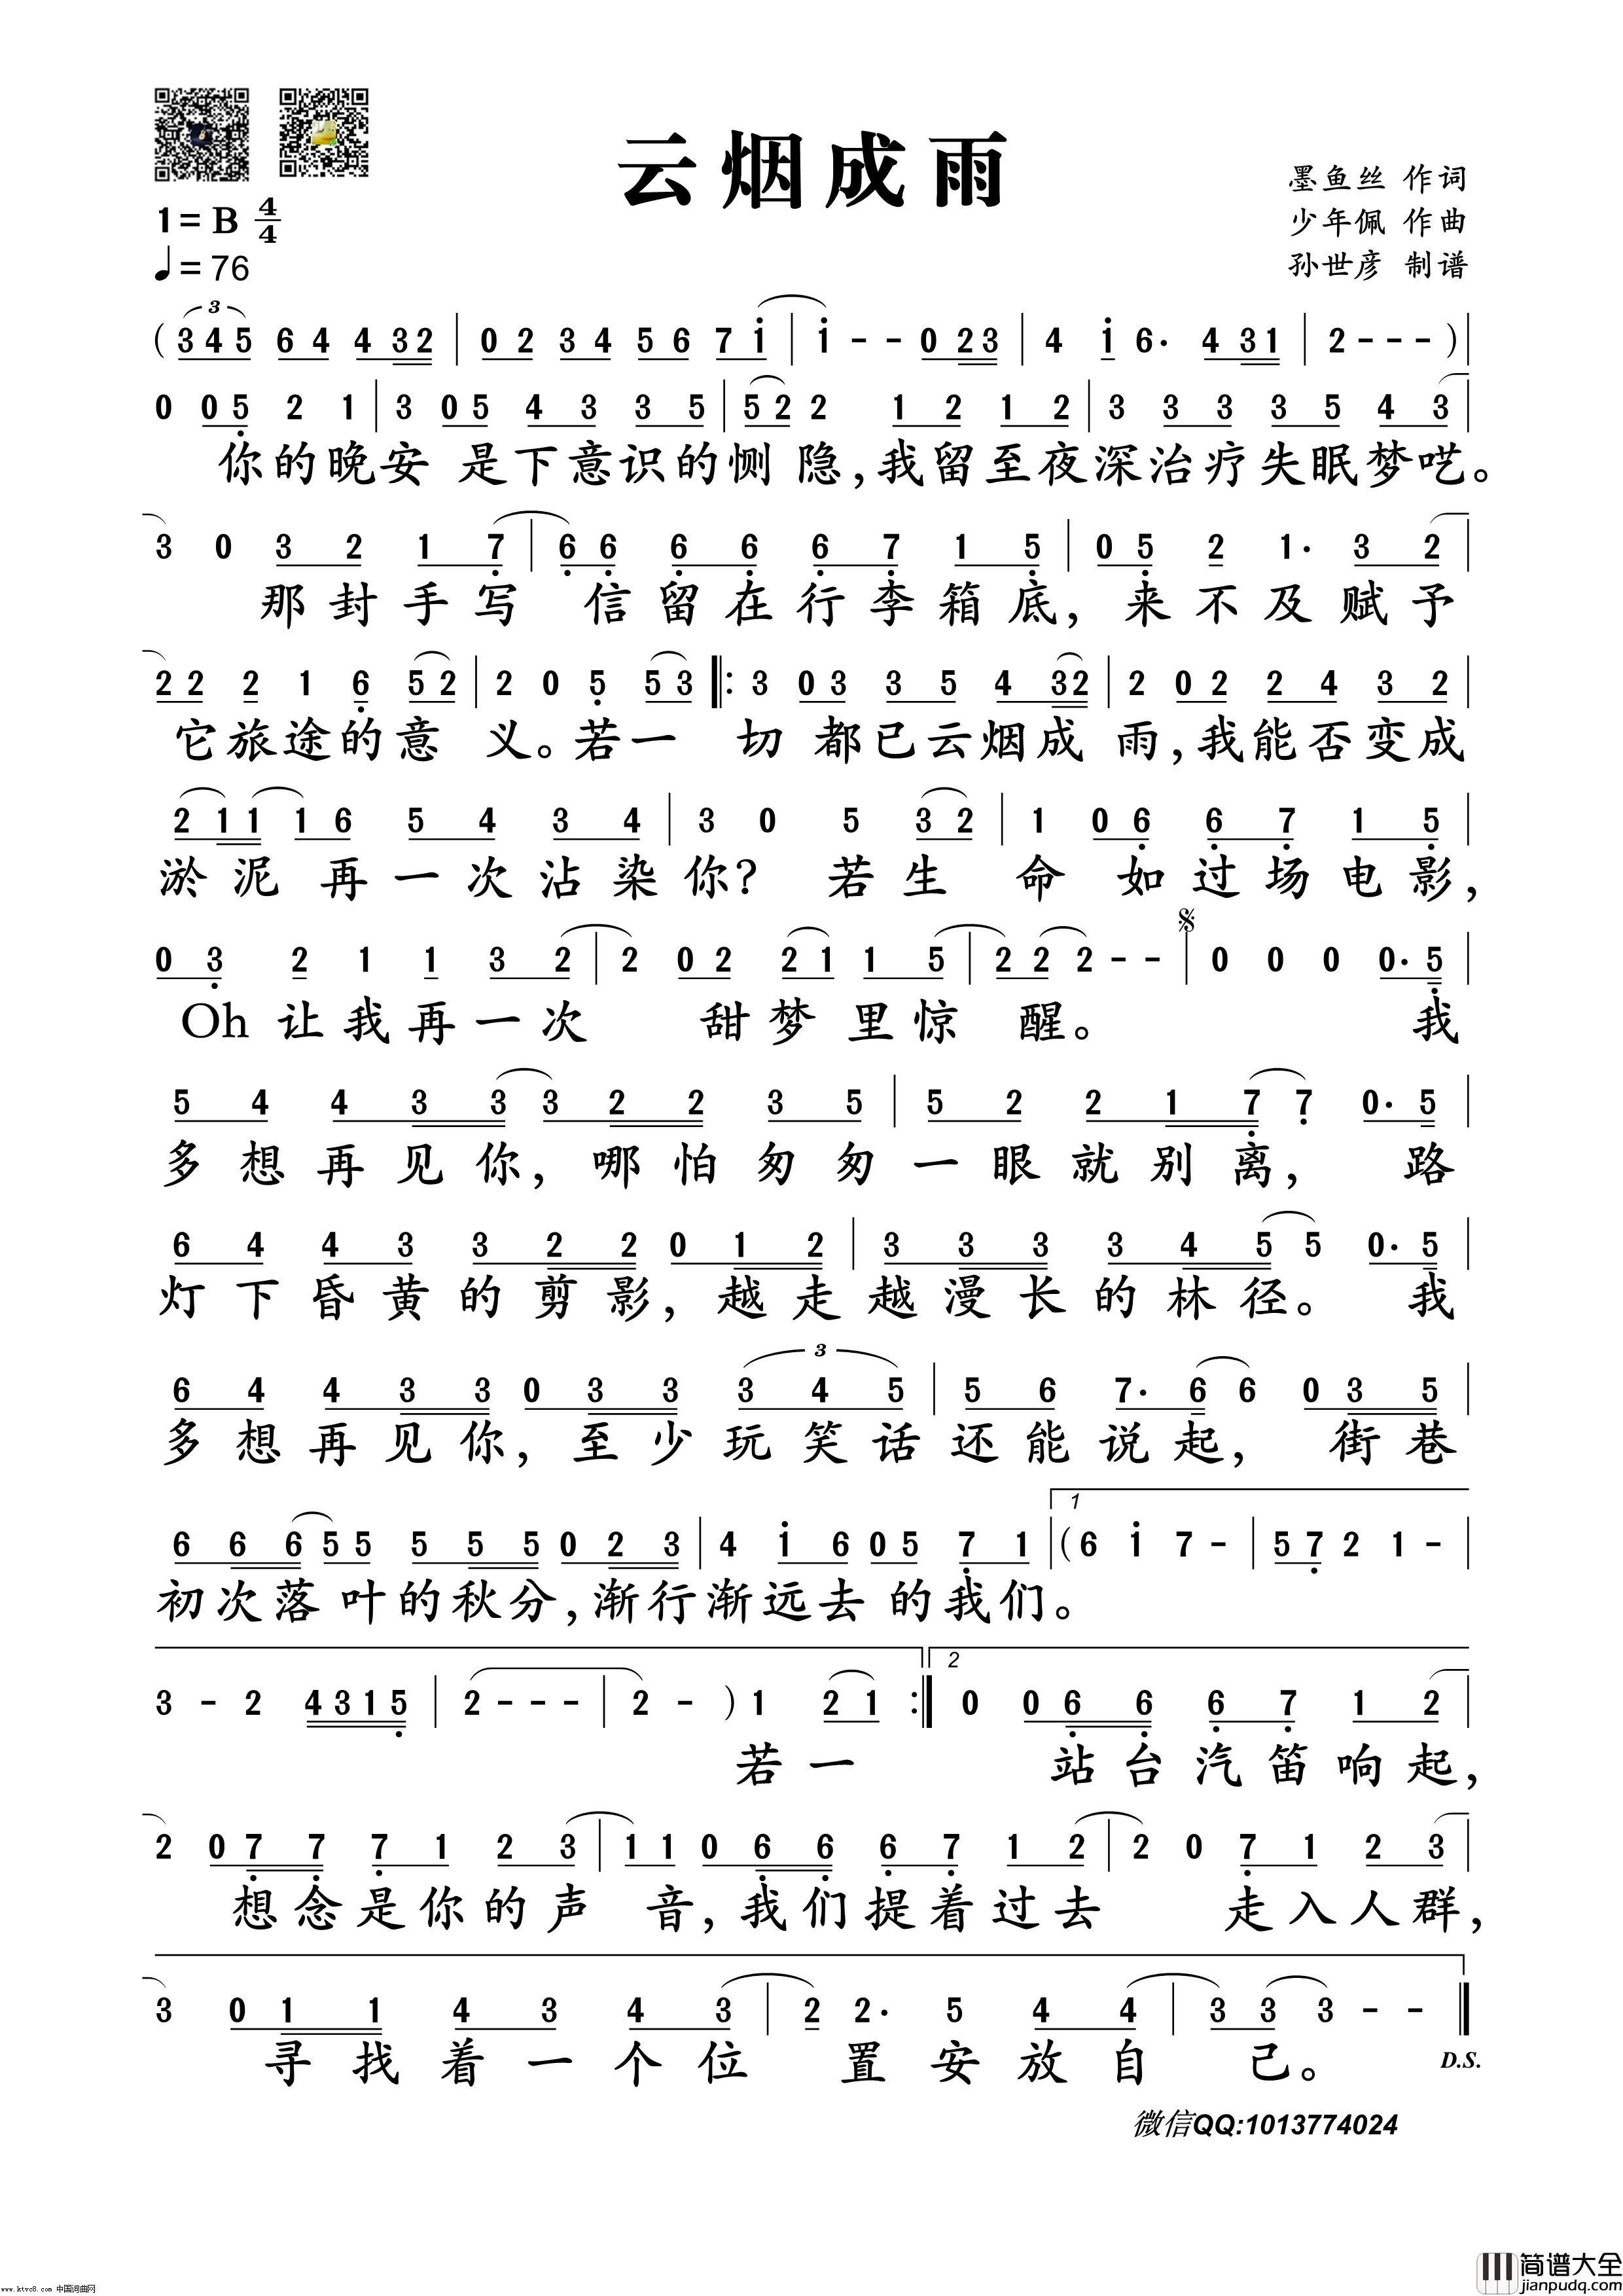 云烟成雨
墨鱼丝 作词
少年佩 作曲
孙世彦 制谱
1=B 4/4
♩=76
3
( 3 4 5 6 4 4 3 2 | 0 2 3 4 5 6 7 i | i - - 0 2 3 | 4 i 6. 4 3 1 | 2 - - - ) |
0 0 5 2 1 | 3 0 5 4 3 3 5 | 5 2 2 1 2 1 2 | 3 3 3 3 5 4 3 |
你的晚安 是下意识的恻隐,我留至夜深治疗失眠梦呓。
3 0 3 2 1 7 | 6 6 6 6 6 7 1 5 | 0 5 2 1. 3 2 |
那封手写 信留在行李箱底, 来不及赋予
2 2 2 1 6 5 2 | 2 0 5 5 3 |: 3 0 3 3 5 4 3 2 | 2 0 2 2 4 3 2 |
它旅途的意 义。若一 切 都已云烟成 雨,我能否变成
2 1 1 1 6 5 4 3 4 | 3 0 5 3 2 | 1 0 6 6 7 1 5 |
淤泥再一次沾染你? 若生 命 如过场电影,
0 3 2 1 1 3 2 | 2 0 2 2 1 1 5 | 2 2 2 - - | 0 0 0 0. 5 |
Oh让我再一次 甜梦里惊 醒。 我
5 4 4 3 3 3 2 2 3 5 | 5 2 2 1 7 7 0. 5 |
多想再见你,哪怕匆匆一眼就别离, 路
6 4 4 3 3 2 2 0 1 2 | 3 3 3 3 4 5 5 0. 5 |
灯下昏黄的剪影,越走越漫长的林径。 我
3
6 4 4 3 3 0 3 3 3 4 5 | 5 6 7. 6 6 0 3 5 |
多想再见你,至少玩笑话还能说起, 街巷
1
6 6 6 5 5 5 5 5 0 2 3 | 4 i 6 0 5 7 1 | ( 6 i 7 - | 5 7 2 1 - |
初次落叶的秋分,渐行渐远去 的我们。
2
3 - 2 4 3 1 5 | 2 - - - | 2 - ) 1 2 1 :| 0 0 6 6 6 7 1 2 |
若一 站台汽笛响起,
2 0 7 7 7 1 2 3 | 1 1 0 6 6 6 7 1 2 | 2 0 7 1 2 3 |
想念是你的声 音,我们提着过去 走入人群,
3 0 1 1 4 3 4 3 | 2 2. 5 4 4 | 3 3 3 - - ‖
寻找着一个位 置安放自 己。 D.S.
微信QQ:1013774024
www.ktvc8.com 中国词曲网
简谱大全
jianpudq.com